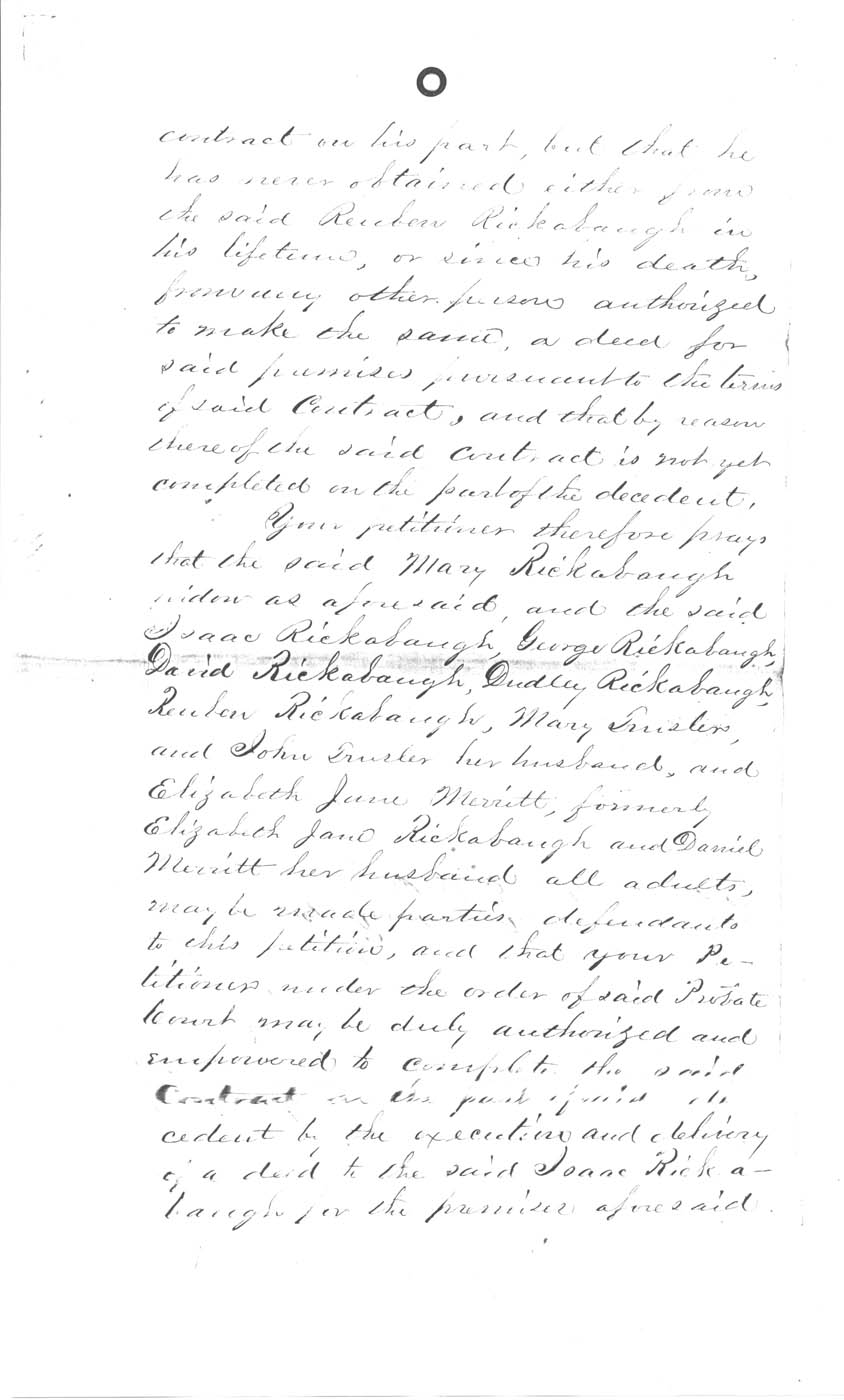 contract on his part, but that he
has never obtained either from
the said Reuben Rickabaugh in
his lifetime, or since his death,
from any other person authorized
to make the same, a deed for
said premises pursuant to the terms
of said Contract, and that by reason
thereof the said contract is not yet
completed on the part of the decedent.
Your petitioner therefore prays
that the said Mary Rickabaugh
widow as aforesaid, and the said
Isaac Rickabaugh, George Rickabaugh,
David Rickabaugh, Dudley Rickabaugh,
Reuben Rickabaugh, Mary Trusler,
and John Trusler her husband, and
Elizabeth Jane Merritt, formerly
Elizabeth Jane Rickabaugh and Daniel
Merritt her husband all adults,
may be made parties defendants
to this petition, and that your Pe-
titioners under the order of said Probate
Court may be duly authorized and
empowered to complete the said
Contract on the part of said de
cedent by the execution and delivery
of a deed to the said Isaac Ricka-
baugh for the premises aforesaid.